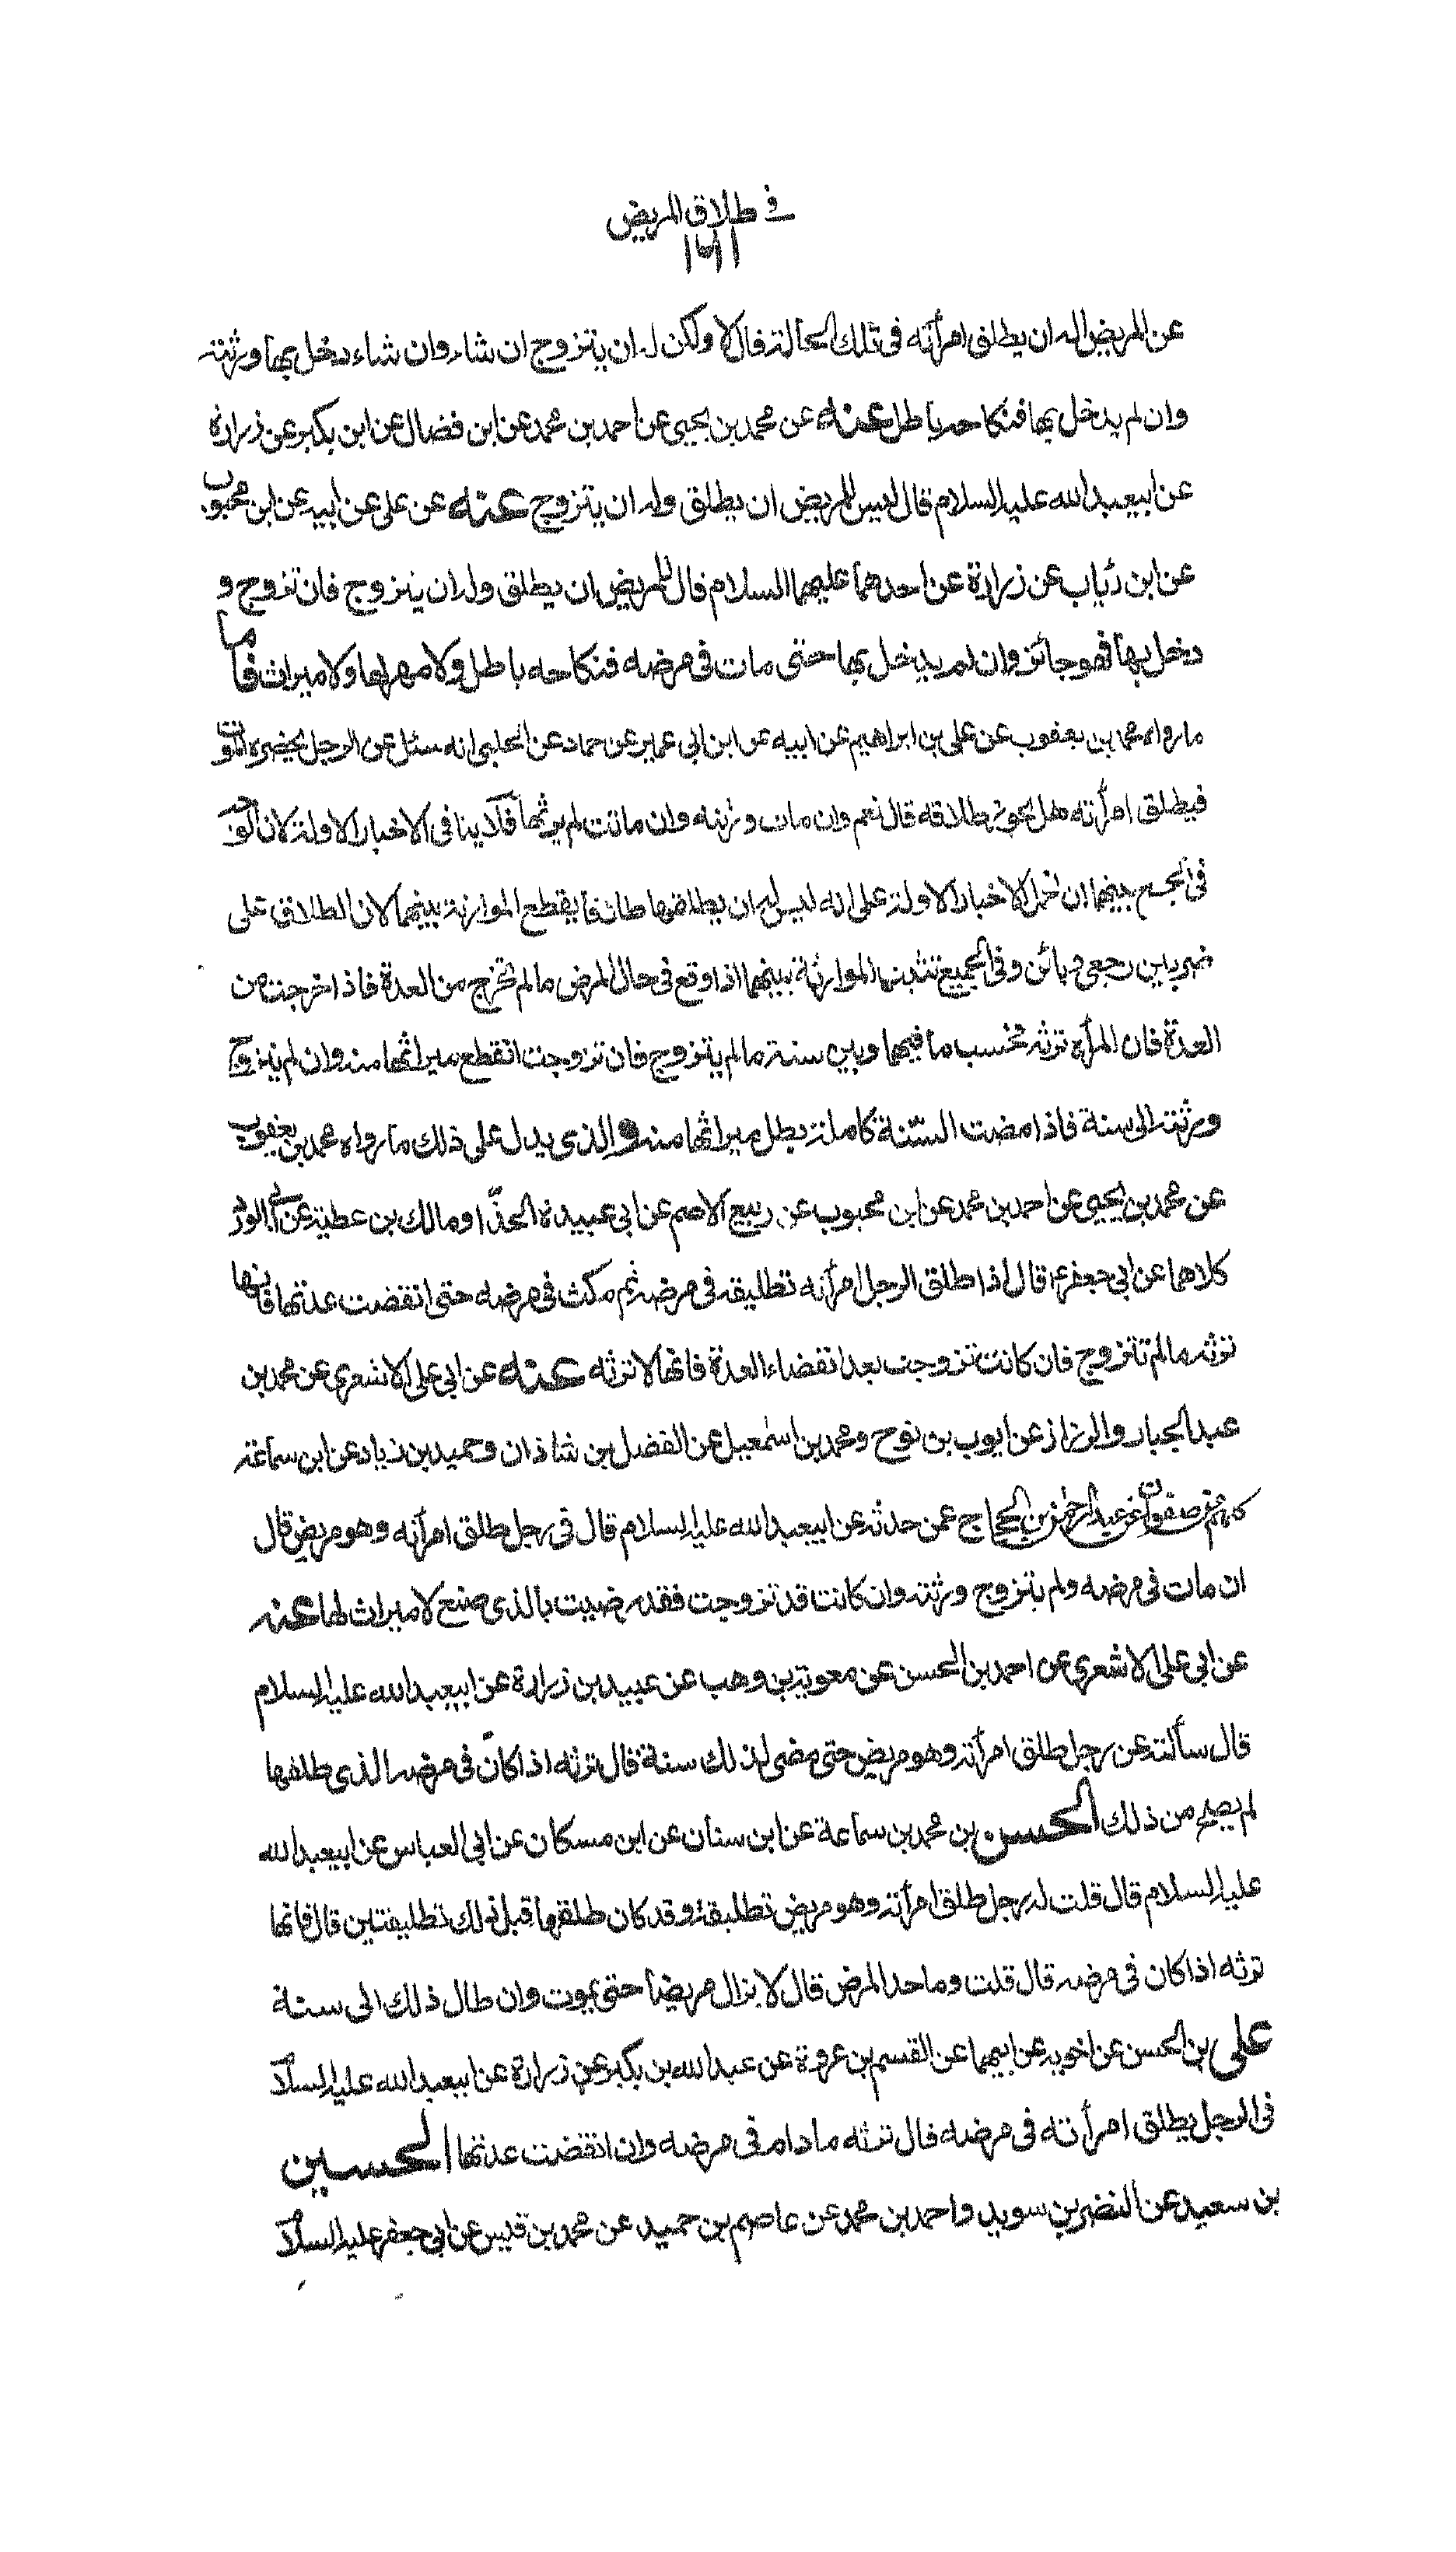 في طلاق المريض
١٦١
عن المريض اله ان يطلق امرأته في تلك الحالة فقال لا ولكن له ان يتزوج ان شاء وان شاء دخل بها ورثته
وان لم يدخل بها فنكاحه باطل عنه عن محمد بن يحيى عن احمد بن محمد عن ابن فضال عن ابن بكير عن زرارة
عن ابيعبد الله عليه السلام قال ليس للمريض ان يطلق وله ان يتزوج عنه عن على عن ابيه عن ابن محبوب
عن ابن رئاب عن زرارة عن احدهما عليهما السلام قال للمريض ان يطلق وله ان يتزوج فان تزوج و
دخل بها فهو جائز وان لم يدخل بها حتى مات في مرضه فنكاحه باطل ولا مهر لها ولا ميراث فاما
ما رواه محمد بن يعقوب عن على بن ابراهيم عن ابيه عن ابن ابي عمير عن حماد عن الحلبي انه سئل عن الرجل يحضره الموت
فيطلق امرأته هل يجوز طلاقه قال نعم وان مات ورثته وان ماتت لم يرثها فلا ينافي الاخبار الاولة لان الوجه
في الجمع بينهما ان نحمل الاخبار الاولة على انه ليس له ان يطلقها طلاقا يقطع الموارثة بينهما لان الطلاق على
ضربين رجعي وبائن وفي الجميع تثبت الموارثة بينهما اذا وقع في حال المرض ما لم تخرج من العدة فاذا خرجت من
العدة فان المرأة ترثه تحتسب ما فيهما وبين سنة ما لم يتزوج فان تزوجت انقطع ميراثها منه وان لم يتزوج
ورثته الى سنة فاذا مضت السنة كاملة بطل ميراثها منه والذى يدل على ذلك ما رواه محمد بن يعقوب
عن محمد بن يحيى عن احمد بن محمد عن ابن محبوب عن ربيع الاصم عن ابي عبيدة الحذّا ومالك بن عطية عن ابي الورد
كلاهما عن ابي جعفر ع قال اذا طلق الرجل امرأته تطليقه في مرضه ثم مكث في مرضه حتى انقضت عدتها فانها
ترثه ما لم تتزوج فان كانت تزوجت بعد انقضاء العدة فانها لا ترثه عنه عن ابي على الاشعري عن محمد بن
عبد الجبار والرزاز عن ايوب بن نوح ومحمد بن اسمعيل عن الفضل بن شاذان وحميد بن زياد عن ابن سماعة
كلهم عن صفوان عن عبد الرحمن بن الحجاج عمن حدثه عن ابيعبد الله عليه السلام قال في رجل طلق امرأته وهو مريض قال
ان مات في مرضه ولم يتزوج ورثته وان كانت قد تزوجت فقد رضيت بالذى صنع لا ميراث لها عنه
عن ابي على الاشعري عن احمد بن الحسن عن معوية بن وهب عن عبيد بن زرارة عن ابيعبد الله عليه السلام
قال سألته عن رجل طلق امرأته وهو مريض حتى مضى لذلك سنة قال ترثه اذا كان في مرضه الذي طلقها
لم يصح من ذلك الحسن بن محمد بن سماعة عن ابن سنان عن ابن مسكان عن ابي العباس عن ابيعبد الله
عليه السلام قال قلت له رجل طلق امرأته وهو مريض تطليقة وقد كان طلقها قبل ذلك تطليقتين قال فانها
ترثه اذا كان في مرضه قال قلت وما حد المرض قال لا يزال مريضا حتى يموت وان طال ذلك الى سنة
على بن الحسن عن اخويه عن ابيهما عن القسم بن عروة عن عبد الله بن بكير عن زرارة عن ابيعبد الله عليه السلام
في الرجل يطلق امرأته في مرضه قال ترثه ما دام في مرضه وان انقضت عدتها الحسين
بن سعيد عن النضر بن سويد واحمد بن محمد عن عاصم بن حميد عن محمد بن قيس عن ابي جعفر عليه السلام